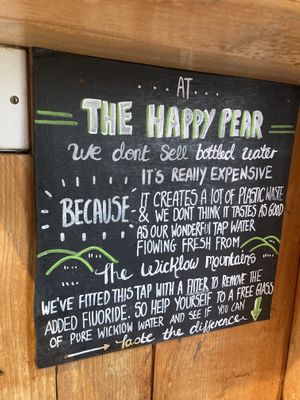 ...AT...
THE HAPPY PEAR
We dont Sell bottled water
IT'S REALLY EXPENSIVE
BECAUSE
IT CREATES A LOT OF PLASTIC WASTE
& WE DONT THINK IT TASTES AS GOOD
AS OUR WONDERFUL TAP WATER
FLOWING FRESH FROM
The Wicklow mountains
WE'VE FITTED THIS TAP WITH A FILTER TO REMOVE THE
ADDED FLUORIDE. SO HELP YOURSELF TO A FREE GLASS
OF PURE WICKLOW WATER AND SEE IF YOU CAN
taste the difference